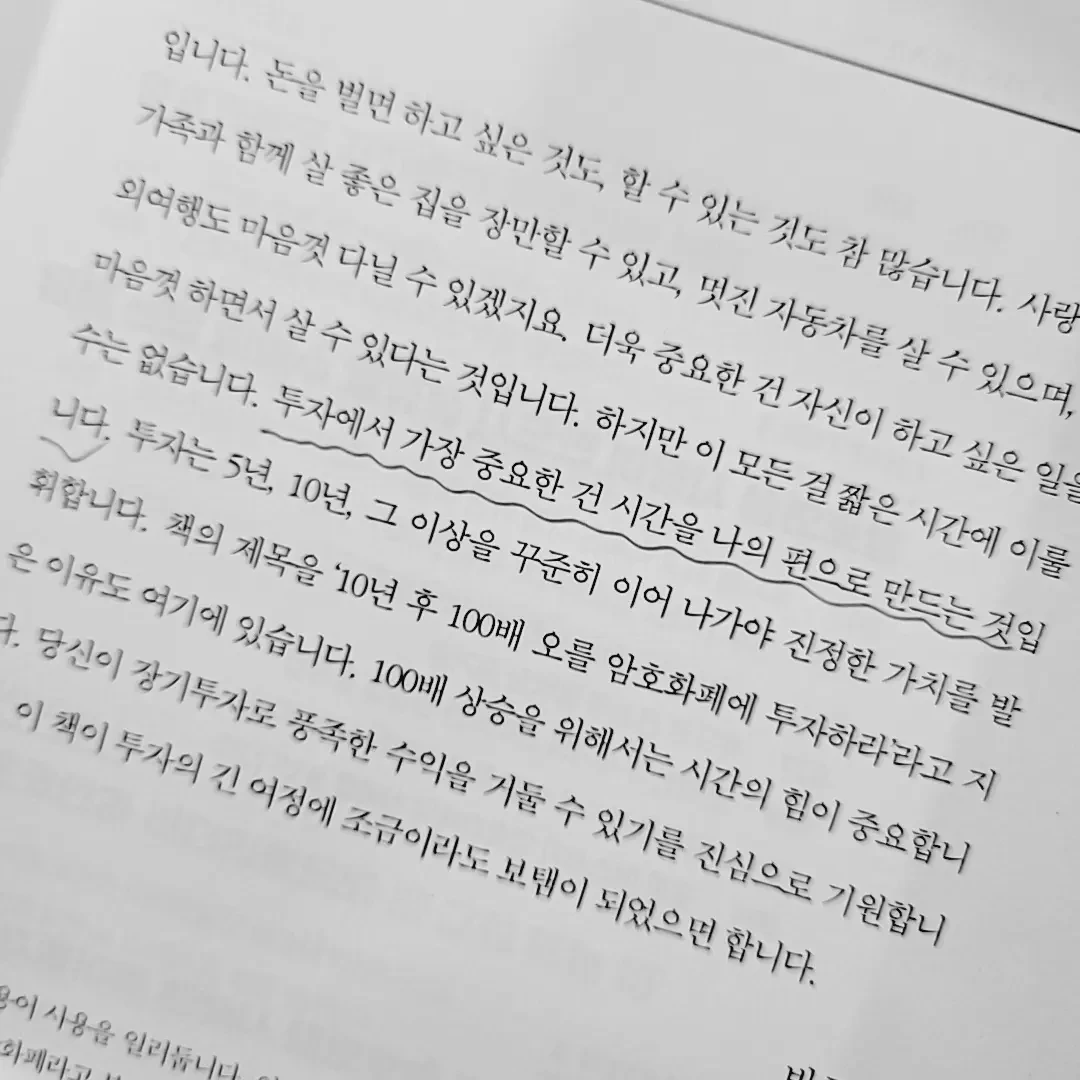 입니다. 돈을 벌면 하고 싶은 것도, 할 수 있는 것도 참 많습니다. 사랑
가족과 함께 살 좋은 집을 장만할 수 있고, 멋진 자동차를 살 수 있으며,
외여행도 마음껏 다닐 수 있겠지요. 더욱 중요한 건 자신이 하고 싶은 일을
마음껏 하면서 살 수 있다는 것입니다. 하지만 이 모든 걸 짧은 시간에 이룰
수는 없습니다. 투자에서 가장 중요한 건 시간을 나의 편으로 만드는 것입
니다. 투자는 5년, 10년, 그 이상을 꾸준히 이어 나가야 진정한 가치를 발
휘합니다. 책의 제목을 '10년 후 100배 오를 암호화폐에 투자하라'라고 지
은 이유도 여기에 있습니다. 100배 상승을 위해서는 시간의 힘이 중요합니
다. 당신이 장기투자로 풍족한 수익을 거둘 수 있기를 진심으로 기원합니
이 책이 투자의 긴 여정에 조금이라도 보탬이 되었으면 합니다.
용이 사용을 일러둡니다.
화폐라고